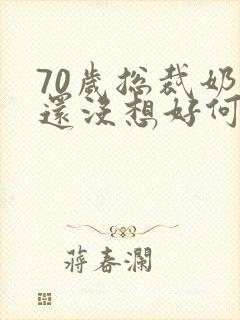 70歲總裁奶
還沒想好何
蔣春瀾